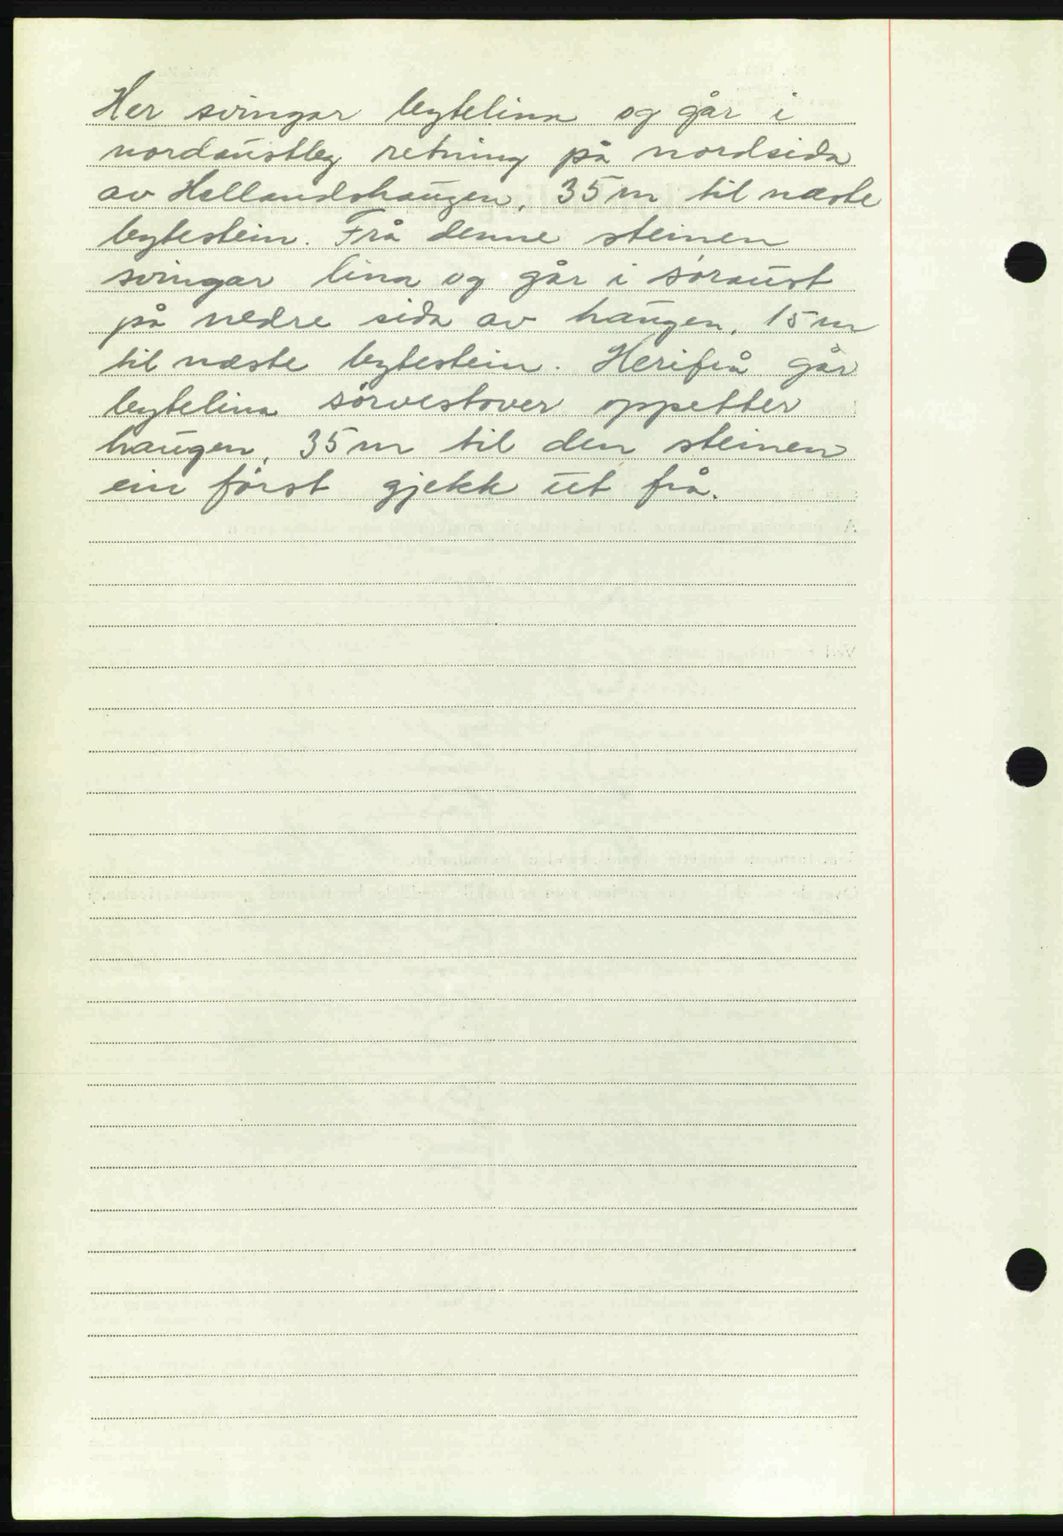 Her svingar bytelina og går i
nordaustleg retning på nordsida
av Hellandshaugen, 35 m til næste
bytestein. Frå denne steinen
svingar lina og går i søraust
på nedre sida av haugen, 15 m
til næste bytestein. Herifrå går
bytelina sørvestover oppetter
haugen, 35 m til den steinen
ein først gjekk ut frå.